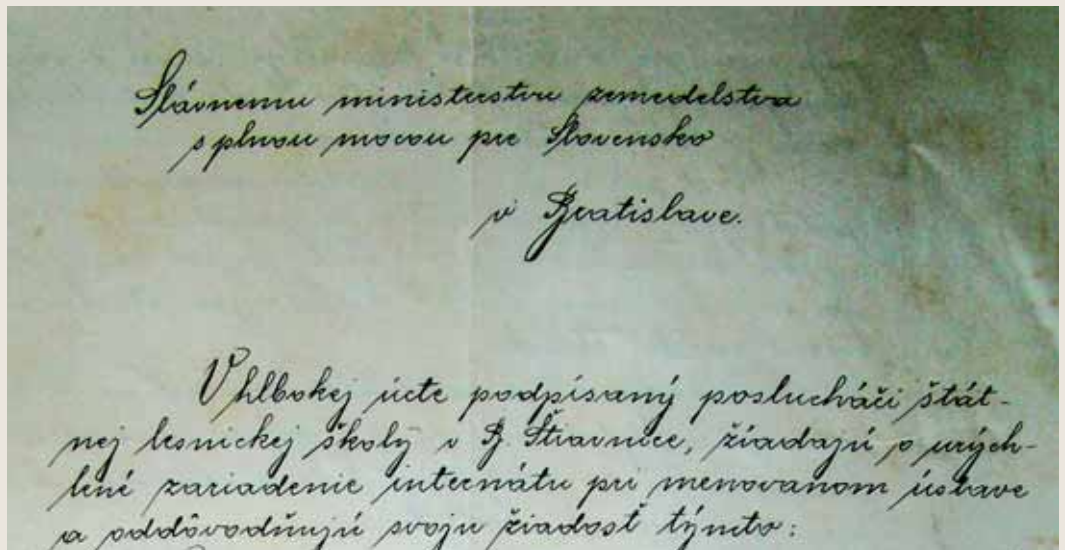 Slávnemu ministerstvu zemedelstva
s plnou mocou pre Slovensko
v Bratislave.
V hlbokej úcte podpísaný poslucháči štát-
nej lesnickej školy v B. Štiavnice, žiadajú o urých-
lené zariadenie internátu pri menovanom ústave
a oddôvodňujú svoju žiadosť týmto: